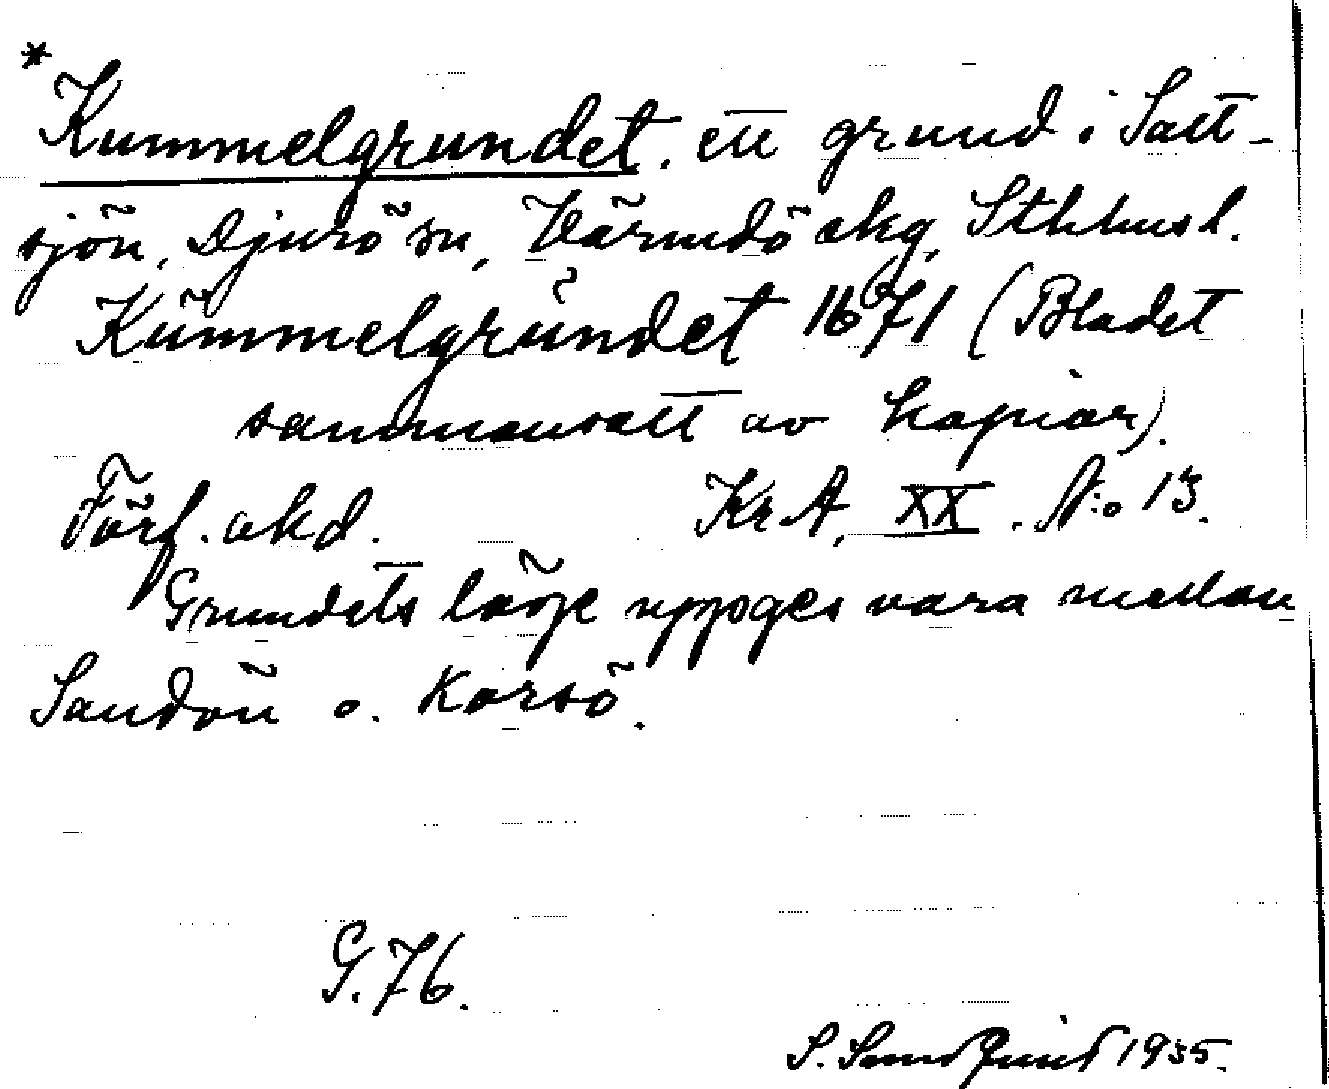 * Kummelgrundet, ett grund i Salt-
sjön, Djurö sn, Värmdö skg, Sthlms l.
Kummelgrundet 1671 (Bladet
sammansatt av kopior).
Förf. okd. Kr A, XX. N:o 13.
Grundets läge uppges vara mellan
Sandön o. Korsö.
G. 76.
S. Sundquist 1935.